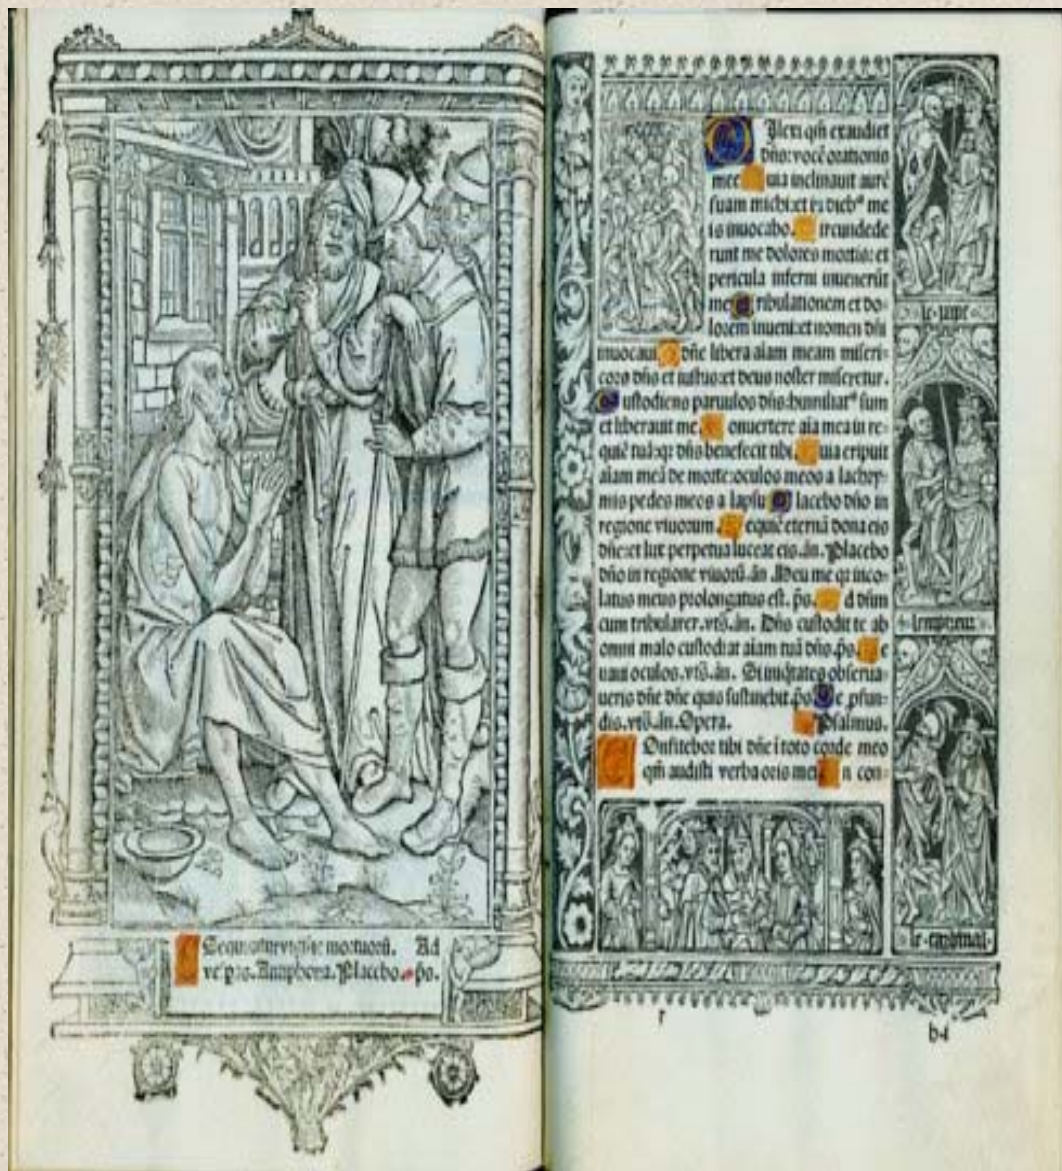 Sequuntur vigilie mortuorū. Ad
vesp̄as. Antiphona. Placebo. p̄s.
Dilexi qm̄ exaudiet
dn̄s: vocē orationis
mee Quia inclinauit aurē
suam michi: et in dieb⁹ me
is inuocabo. Circundede
runt me dolores mortis: et
pericula inferni inuenerūt
me Tribulationem et do-
lorem inueni: et nomen dn̄i
inuocaui. O dn̄e libera aīam meam miseri-
cors dn̄s et iustus: et deus noster miseretur.
Custodiens paruulos dn̄s: humiliat⁹ sum
et liberauit me. Conuertere aīa mea in re-
quiē tuā: qr dn̄s benefecit tibi. Quia eripuit
aīam meā de morte: oculos meos a lachry-
mis pedes meos a lapsu Placebo dn̄o in
regione viuorum. Requiē eternā dona eis
dn̄e: et lux perpetua luceat eis. ān. Placebo
dn̄o in regione viuorū. ān Heu me qr inco-
latus meus prolongatus est. p̄s. Ad dn̄m
cum tribularer. vts̄. ān. Dn̄s custodit te ab
omni malo custodiat aīam tuā dn̄s. p̄s. Le
uaui oculos. vts̄. ān. Si iniq̄tates obserua-
ueris dn̄e dn̄e quis sustinebit. p̄s De p̄fun-
dis. vts̄. ān. Opera. Psalmus.
Confitebor tibi dn̄e ī toto corde meo
qm̄ audisti verba oris mei In con-
le pape
lempereur
le cardinal
r
b4